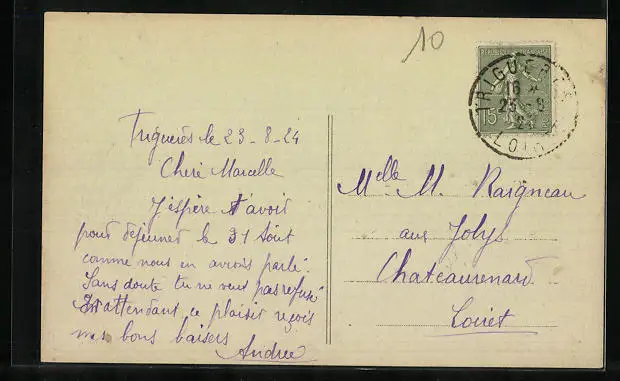 10
TRIGUERES
16 *
23 - 8
24
LOIRET
15
Triguerès le 23-8-24
Chère Marcelle
J'éspère t'avoir
pour déjeuner le 31 Août
comme nous en avions parlé.
Sans doute tu ne veut pas refusé
En attendant ce plaisir reçois
mes bons baisers
Andrée
Melle M. Raigneau
aux Jolys
Chateaurenard
Loiret